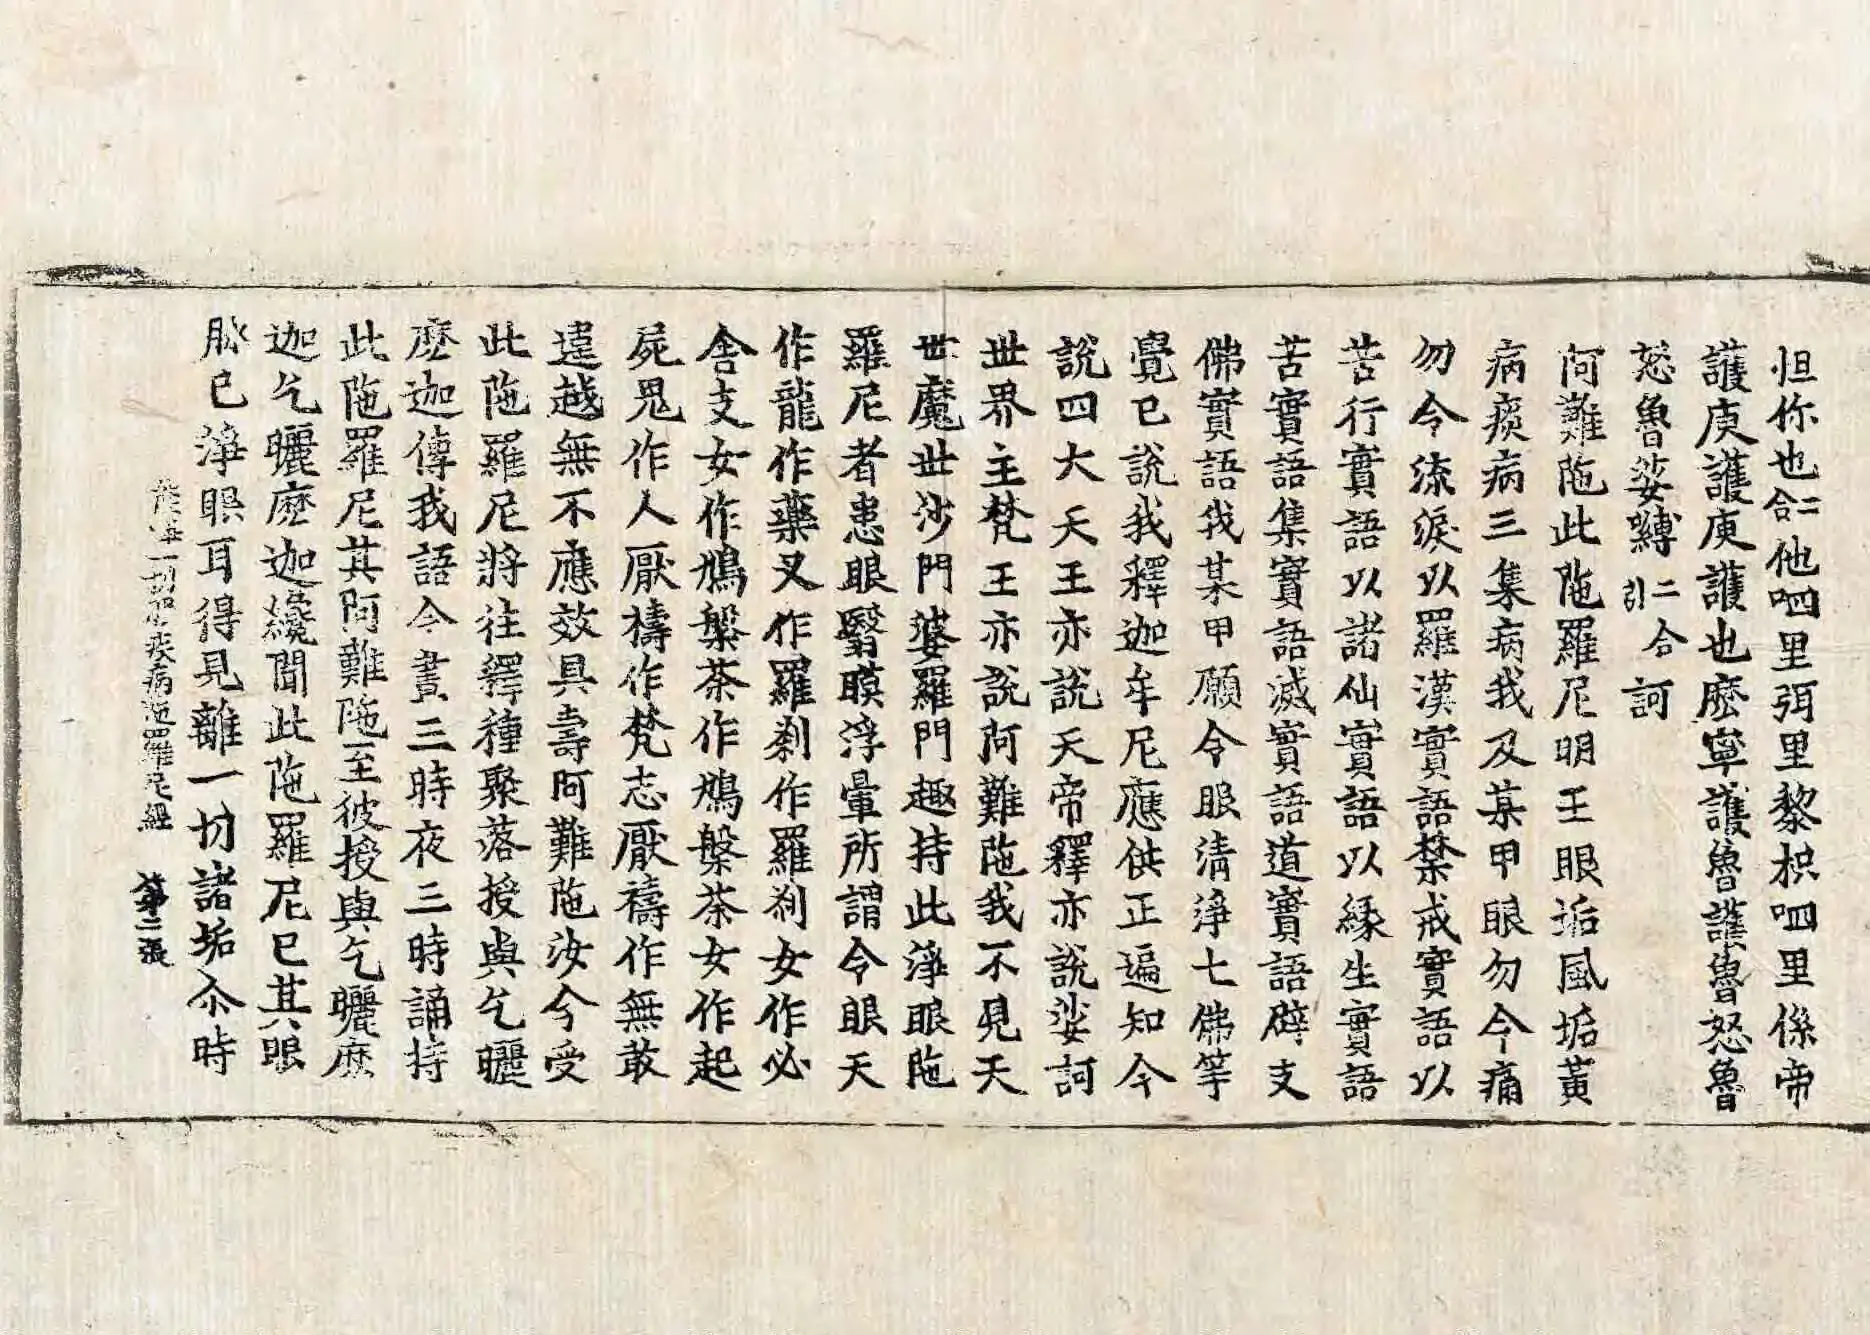 怛你也二合他呬里弭里黎枳呬里係帝
護庾護庾護也麽寧護魯護魯怒魯
怒魯娑嚩二合引訶
阿難陁此陁羅尼明王眼垢風垢黃
病痰病三集病我及某甲眼勿令痛
勿令流淚以羅漢實語禁戒實語以
苦行實語以諸仙實語以緣生實語
苦實語集實語滅實語道實語辟支
佛實語我某甲願令眼清淨七佛等
覺已說我釋迦牟尼應供正遍知今
說四大天王亦說天帝釋亦說娑訶
世界主梵王亦說阿難陁我不見天
世魔世沙門婆羅門趣持此淨眼陁
羅尼者患眼瞖瞙浮暈所謂令眼天
作龍作藥叉作羅刹作羅刹女作必
舍支女作鳩槃茶作鳩槃茶女作起
屍鬼作人厭禱作梵志厭禱作無敢
違越無不應效具壽阿難陁汝今受
此陁羅尼將往釋種聚落授與乞曬
麽迦傳我語令晝三時夜三時誦持
此陁羅尼其阿難陁至彼授與乞曬麽
迦乞曬麽迦纔聞此陁羅尼已其眼
脉已淨眼耳得見離一切諸垢尒時
一切眼疾病陁羅尼經 第二張